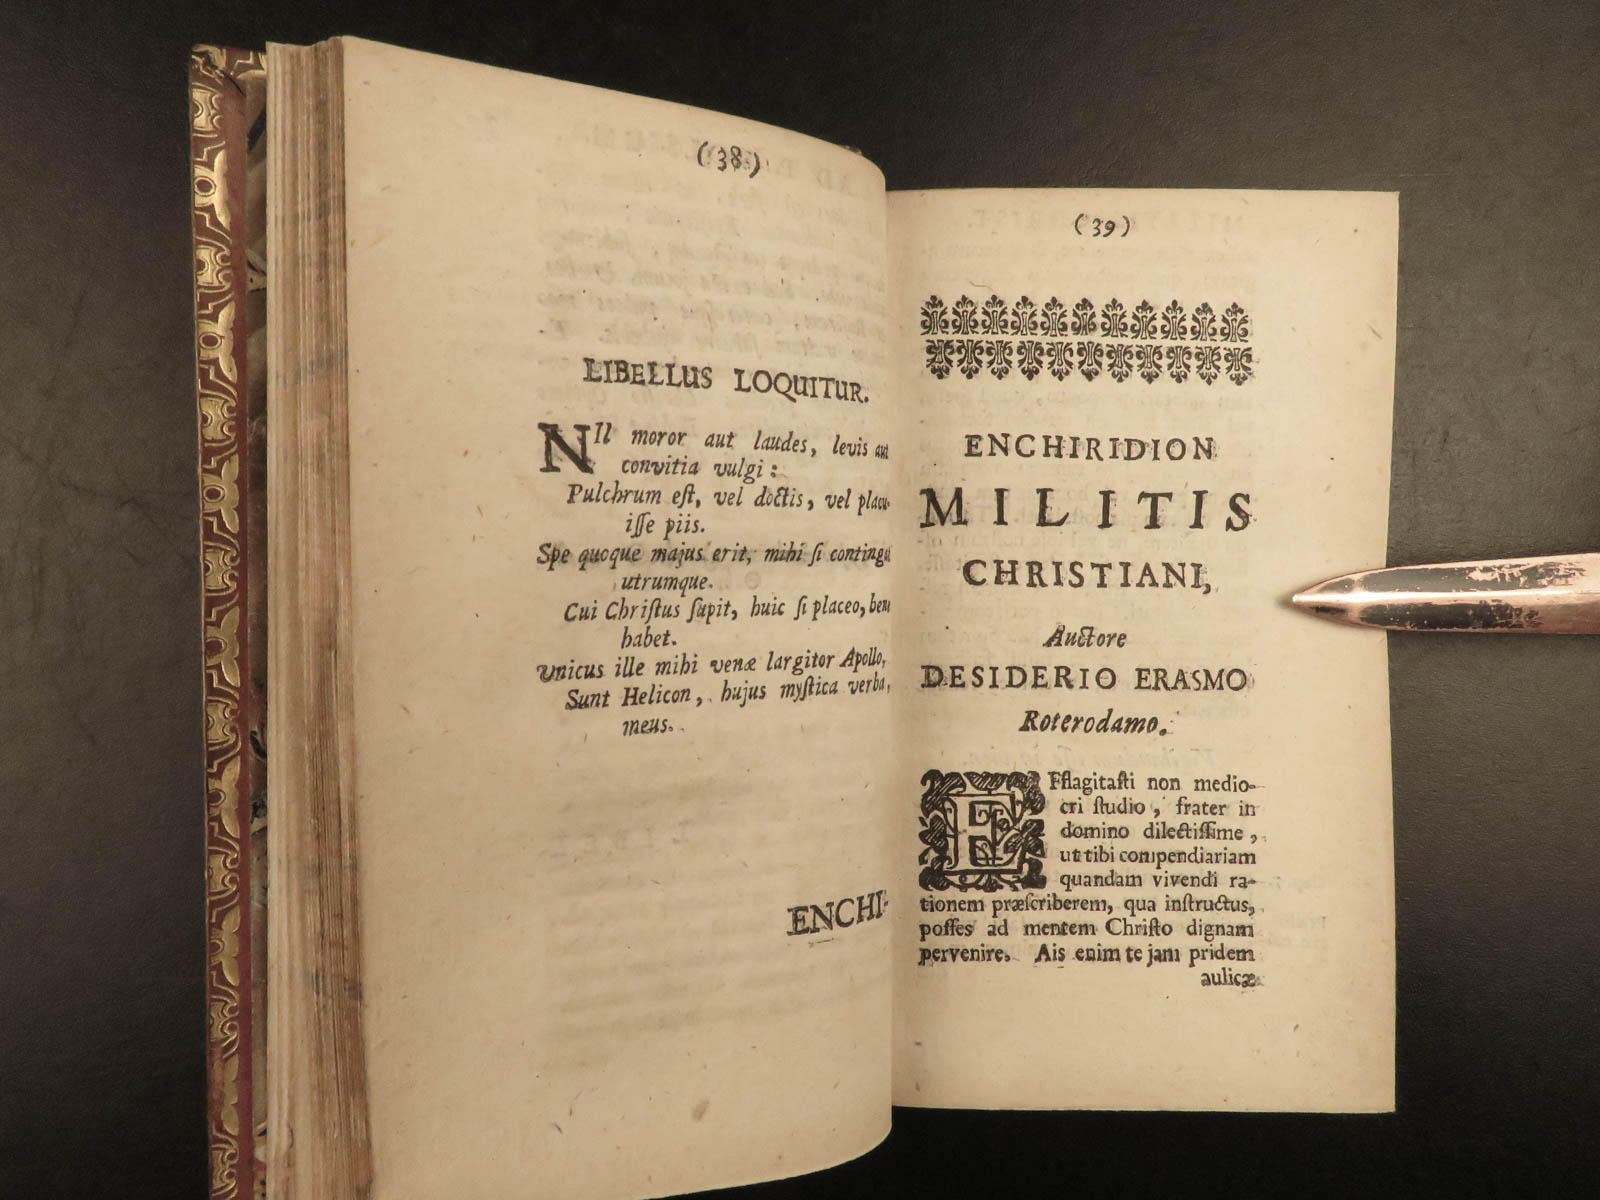 (38)
LIBELLUS LOQUITUR.
NIl moror aut laudes, levis aut
convitia vulgi:
Pulchrum eſt, vel doctis, vel placu-
iſſe piis.
Spe quoque majus erit, mihi ſi contingat
utrumque.
Cui Chriſtus ſapit, huic ſi placeo, bene
habet.
Unicus ille mihi venæ largitor Apollo,
Sunt Helicon, hujus myſtica verba,
meus.
ENCHI-
(39)
ENCHIRIDION
MILITIS
CHRISTIANI,
Auctore
DESIDERIO ERASMO
Roterodamo.
EFflagitaſti non medio-
cri ſtudio, frater in
domino dilectiſſime,
ut tibi compendiariam
quandam vivendi ra-
tionem præſcriberem, qua inſtructus,
poſſes ad mentem Chriſto dignam
pervenire. Ais enim te jam pridem
aulicæ